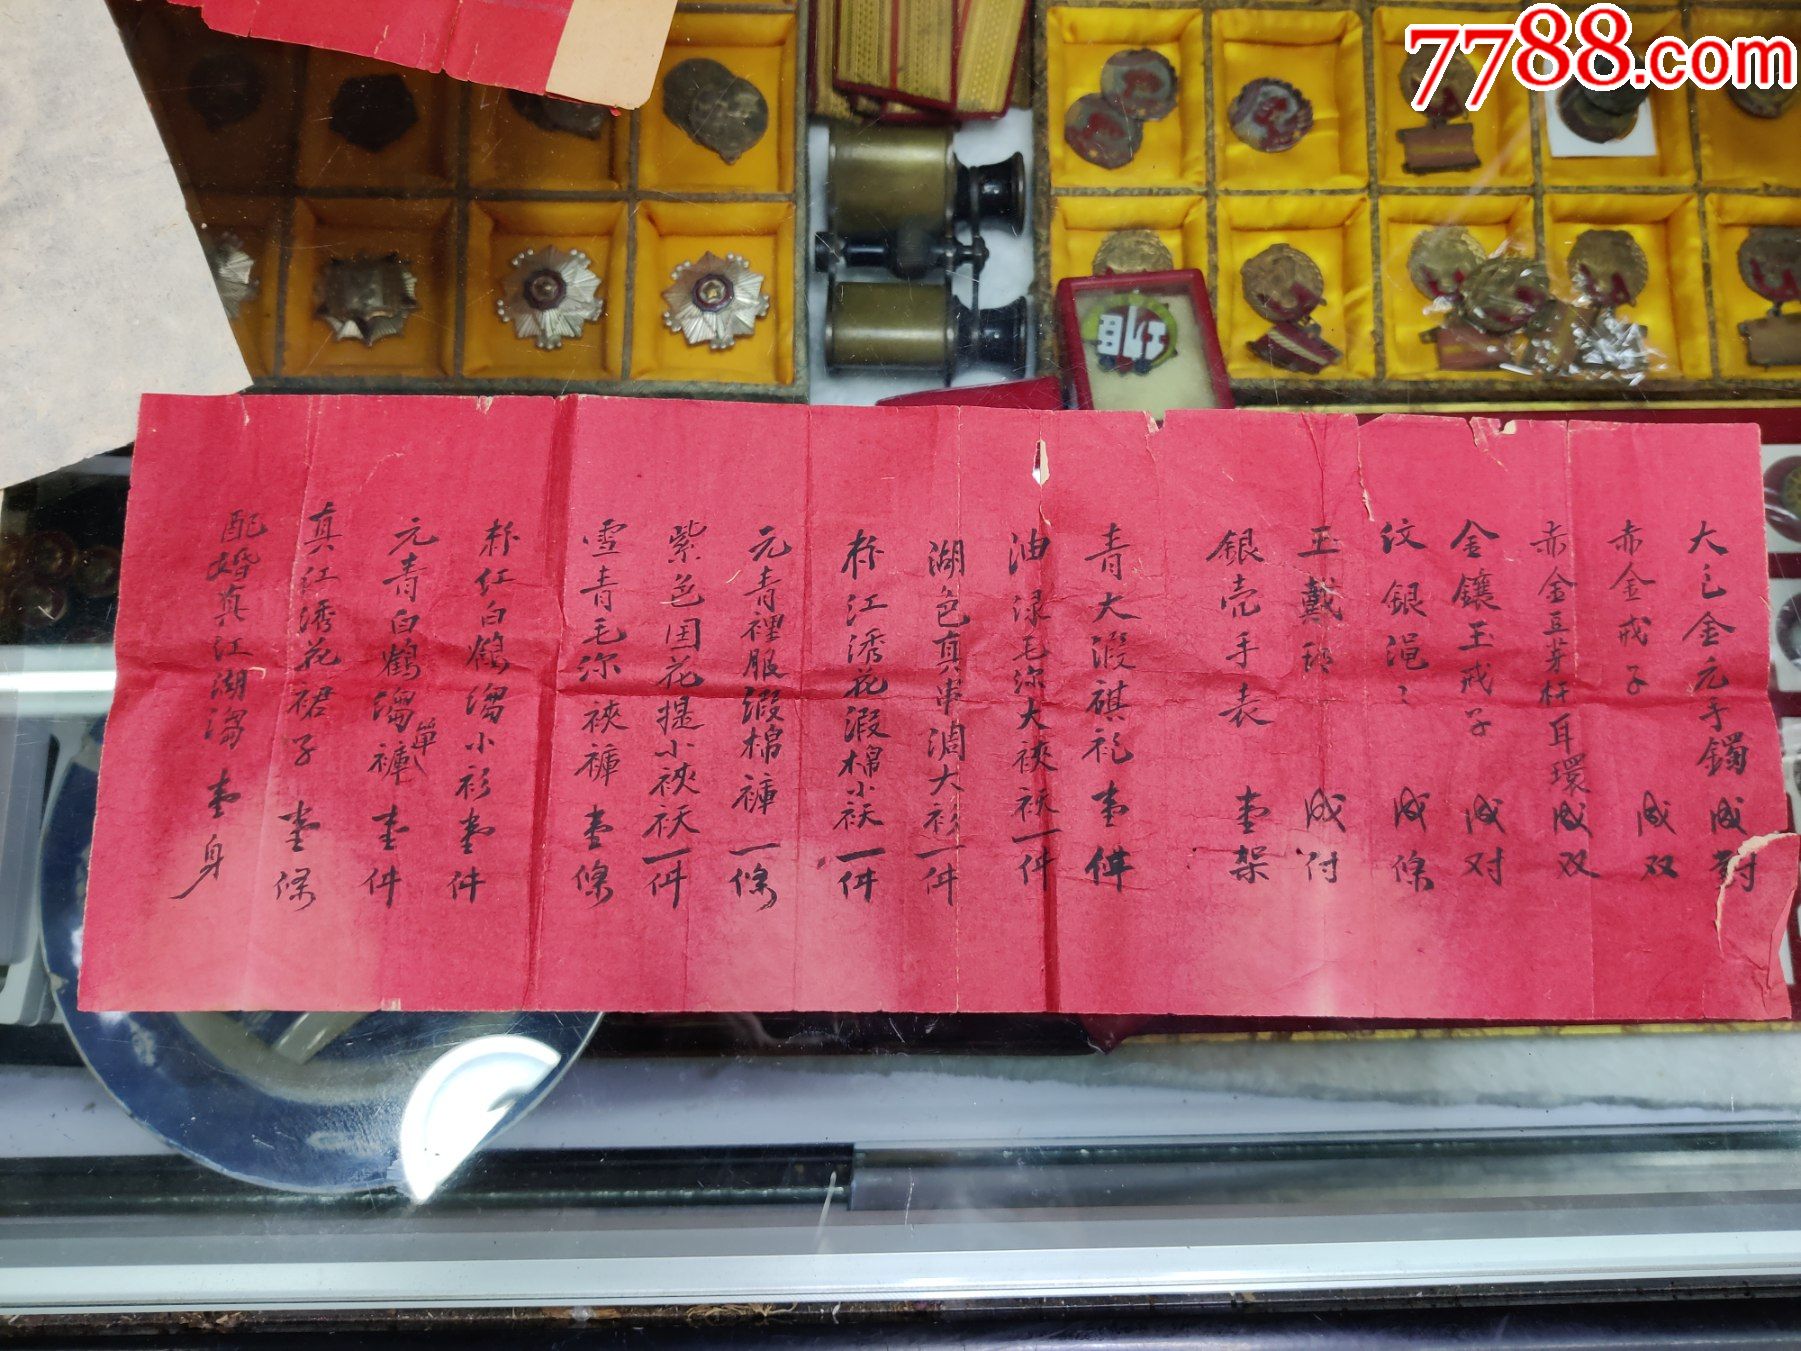 7788.com
大毛金元手鐲 成對
赤金戒子 成双
赤金豆芽杆耳環 成双
金鑲玉戒子 成对
纹銀
成條
玉戴 成付
銀壳手表 壹架
青大緞祺袍 壹件
油绿毛 大裌袄一件
湖色真 大衫一件
江綉花緞棉小袄一件
元青裡服緞棉褲一條
紫色团花提小裌袄一件
雪青毛 裌褲壹條
红白鶴 小衫壹件
元青白鶴 單褲壹件
真红綉花裙子 壹條
配婚真江湖 壹身